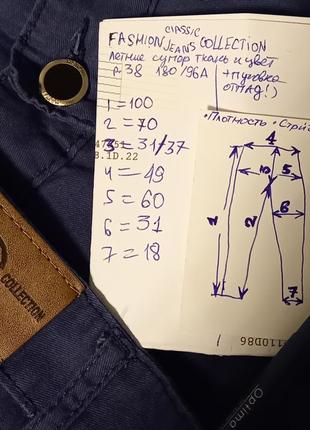 CLASSIC
FASHION JEANS COLLECTION
Летние супер ткань и цвет
р-38 180/96А + пуговка
ОТПАД!)
1 = 100
2 = 70
3 = 31/37
4 = 49
5 = 60
6 = 31
7 = 18
B.1D.22
• Плотность • Стрий
4
3 5
1 2 6
7
110D86
COLLECTION
Optimo